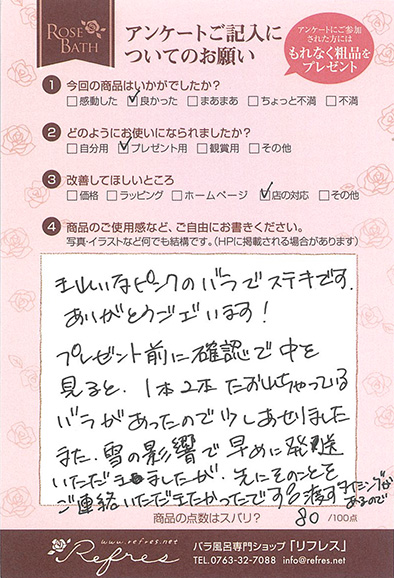 ROSE BATH
アンケートご記入に
ついてのお願い
アンケートにご参加
された方には
もれなく粗品を
プレゼント
1 今回の商品はいかがでしたか?
□感動した ☑良かった □まあまあ □ちょっと不満 □不満
2 どのようにお使いになられましたか?
□自分用 ☑プレゼント用 □観賞用 □その他
3 改善してほしいところ
□価格 □ラッピング □ホームページ ☑店の対応 □その他
4 商品のご使用感など、ご自由にお書きください。
写真・イラストなど何でも結構です。(HPに掲載される場合があります)
キレイなピンクのバラでステキです.
ありがとうございます!
プレゼント前に確認で中を
見ると、1本2本 たおれちゃっている
バラがあったので少しあせりました
また、雪の影響で早めに発送
いただきましたが、先にそのことを
ご連絡いただきたかったです 渡すタイミングが
あるので
商品の点数はズバリ? 80 /100点
www.refres.net
Refres
バラ風呂専門ショップ「リフレス」
TEL.0763-32-7088 info@refres.net